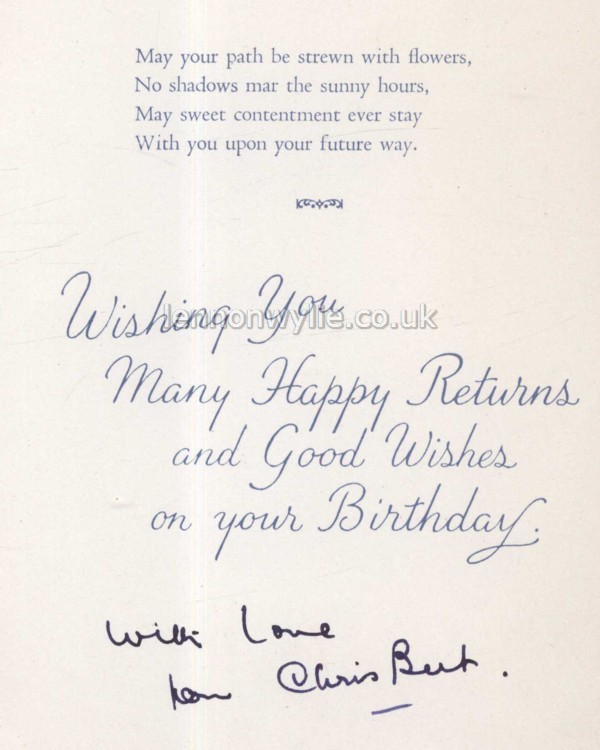 May your path be strewn with flowers,
No shadows mar the sunny hours,
May sweet contentment ever stay
With you upon your future way.
Wishing You
lennonwylie.co.uk
Many Happy Returns
and Good Wishes
on your Birthday.
With Love
Chris